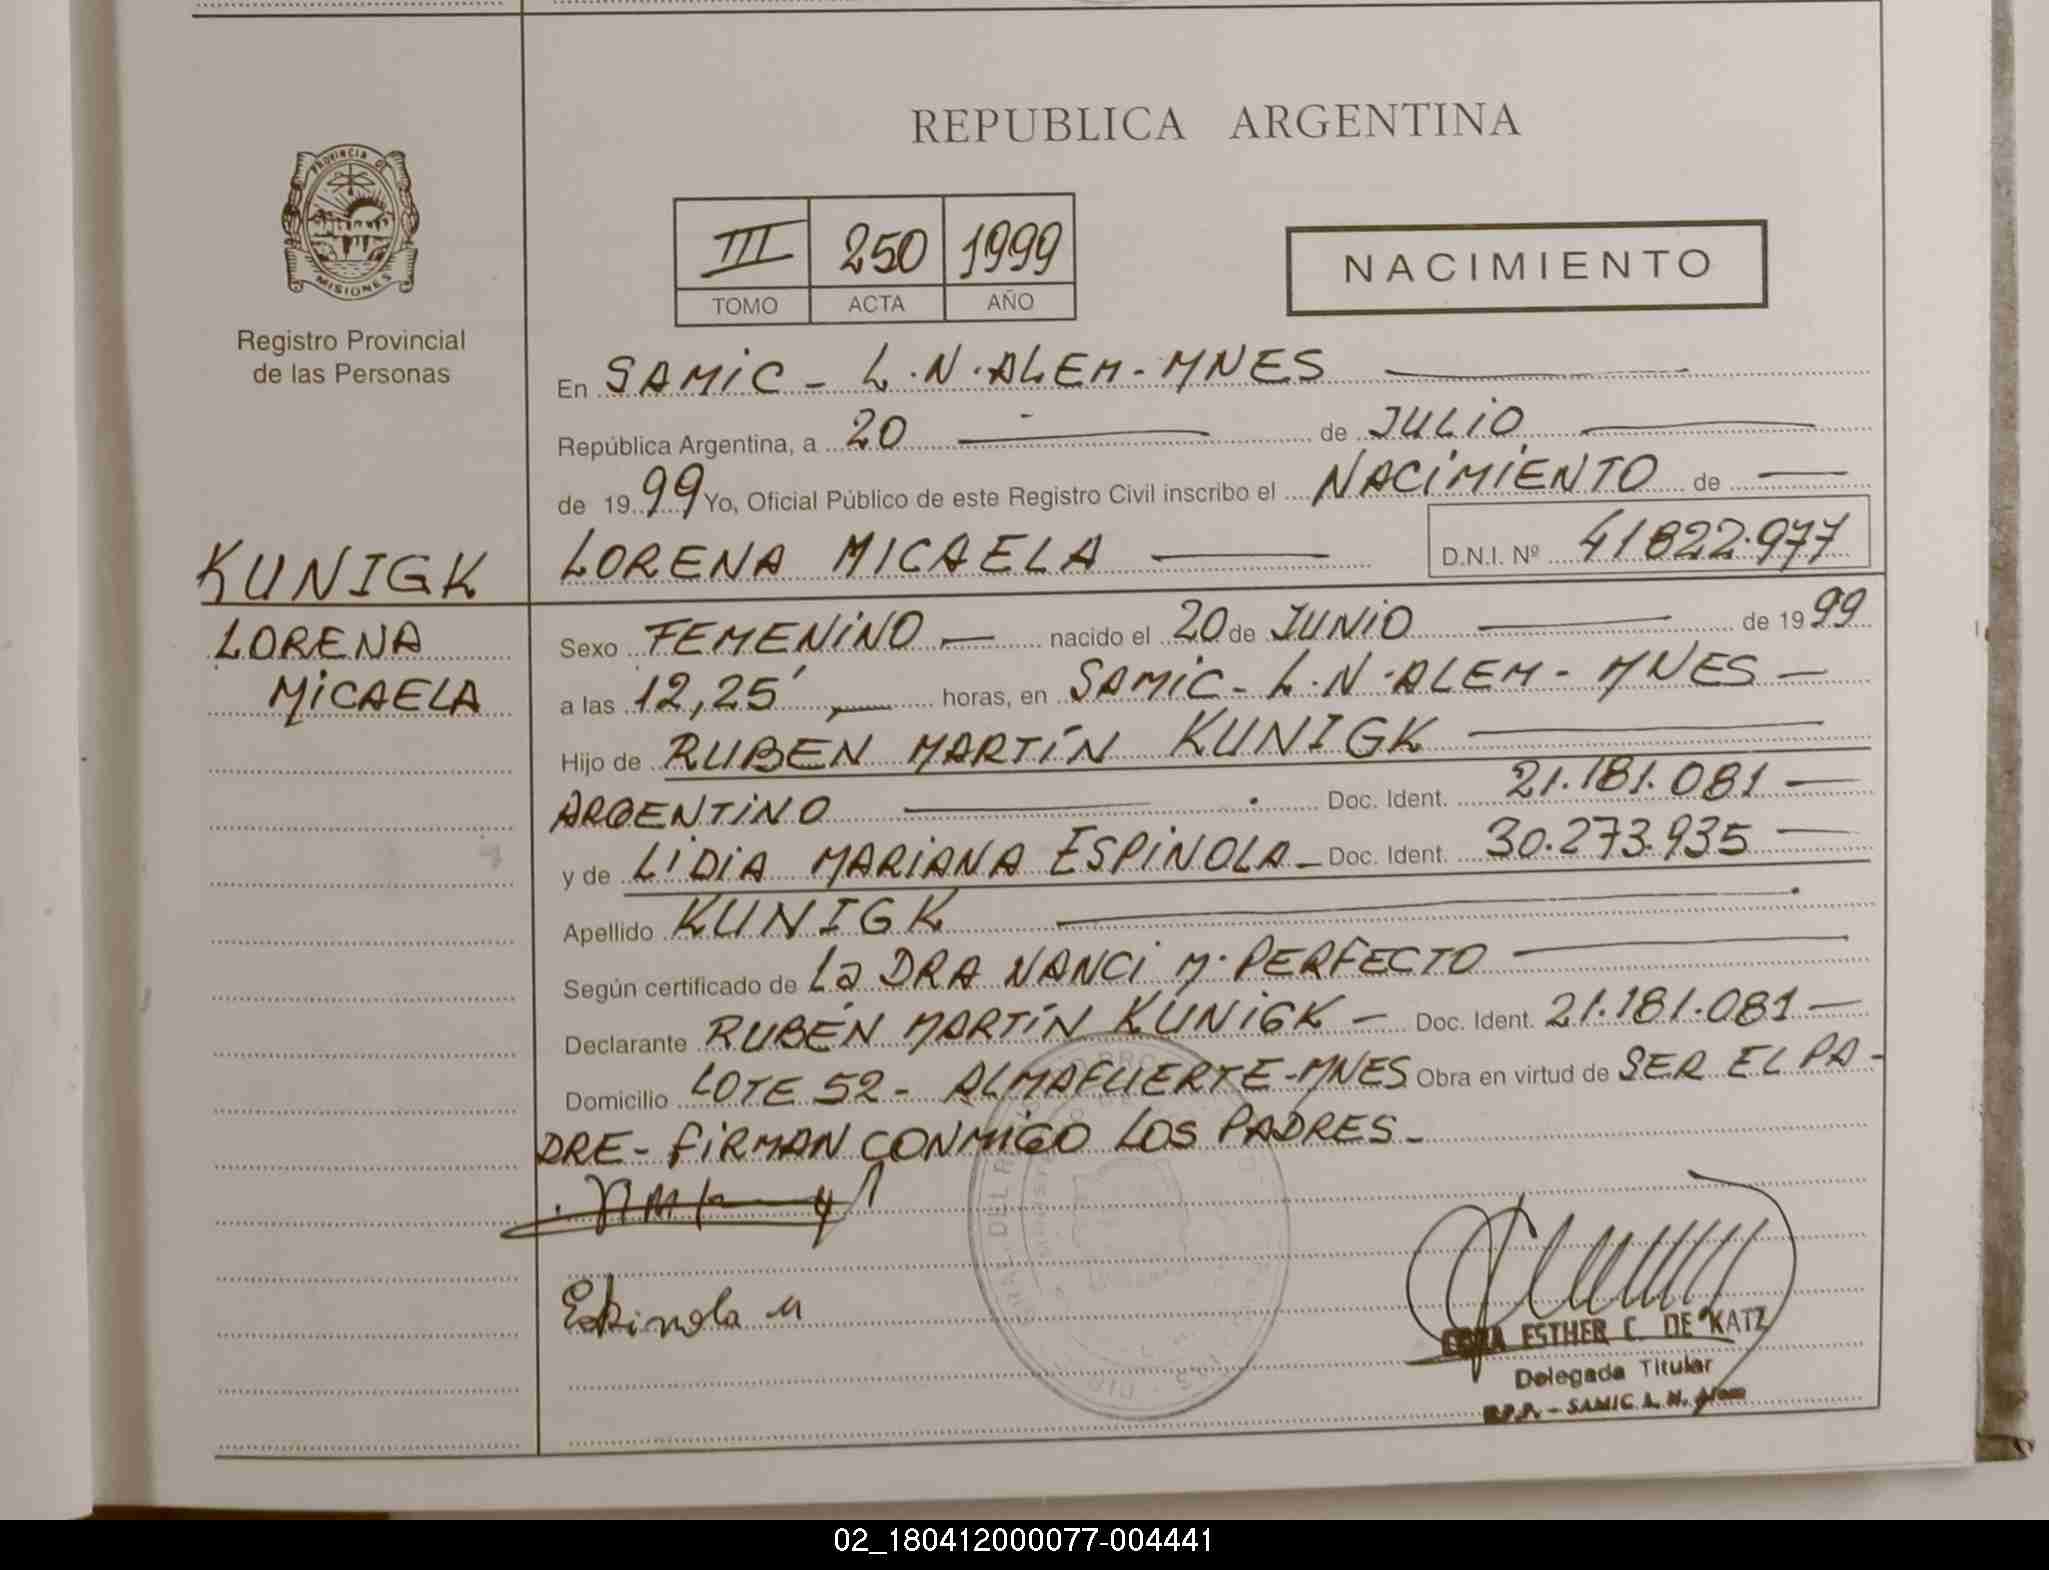 REPUBLICA ARGENTINA
PROVINCIA DE
MISIONES
Registro Provincial
de las Personas
III 250 1999
TOMO ACTA AÑO
NACIMIENTO
En SAMIC - L.N.ALEM - MNES
República Argentina, a 20 de JULIO
de 1999 Yo, Oficial Público de este Registro Civil inscribo el NACIMIENTO de
KUNIGK
LORENA
MICAELA
LORENA MICAELA D.N.I. Nº 41822.977
Sexo FEMENINO nacido el 20 de JUNIO de 1999
a las 12,25' horas, en SAMIC - L.N.ALEM - MNES -
Hijo de RUBEN MARTÍN KUNIGK
ARGENTINO Doc. Ident. 21.181.081 -
y de LIDIA MARIANA ESPINOLA - Doc. Ident. 30.273.935 -
Apellido KUNIGK
Según certificado de La DRA NANCI M. PERFECTO
Declarante RUBEN MARTÍN KUNIGK - Doc. Ident. 21.181.081 -
Domicilio LOTE 52 - ALMAFUERTE - MNES Obra en virtud de SER EL PA-
DRE - FIRMAN CONMIGO LOS PADRES -
Espinola M
ESTHER C. DE KATZ
Delegada Titular
R.P.P. - SAMIC L. N. Alem
02_180412000077-004441